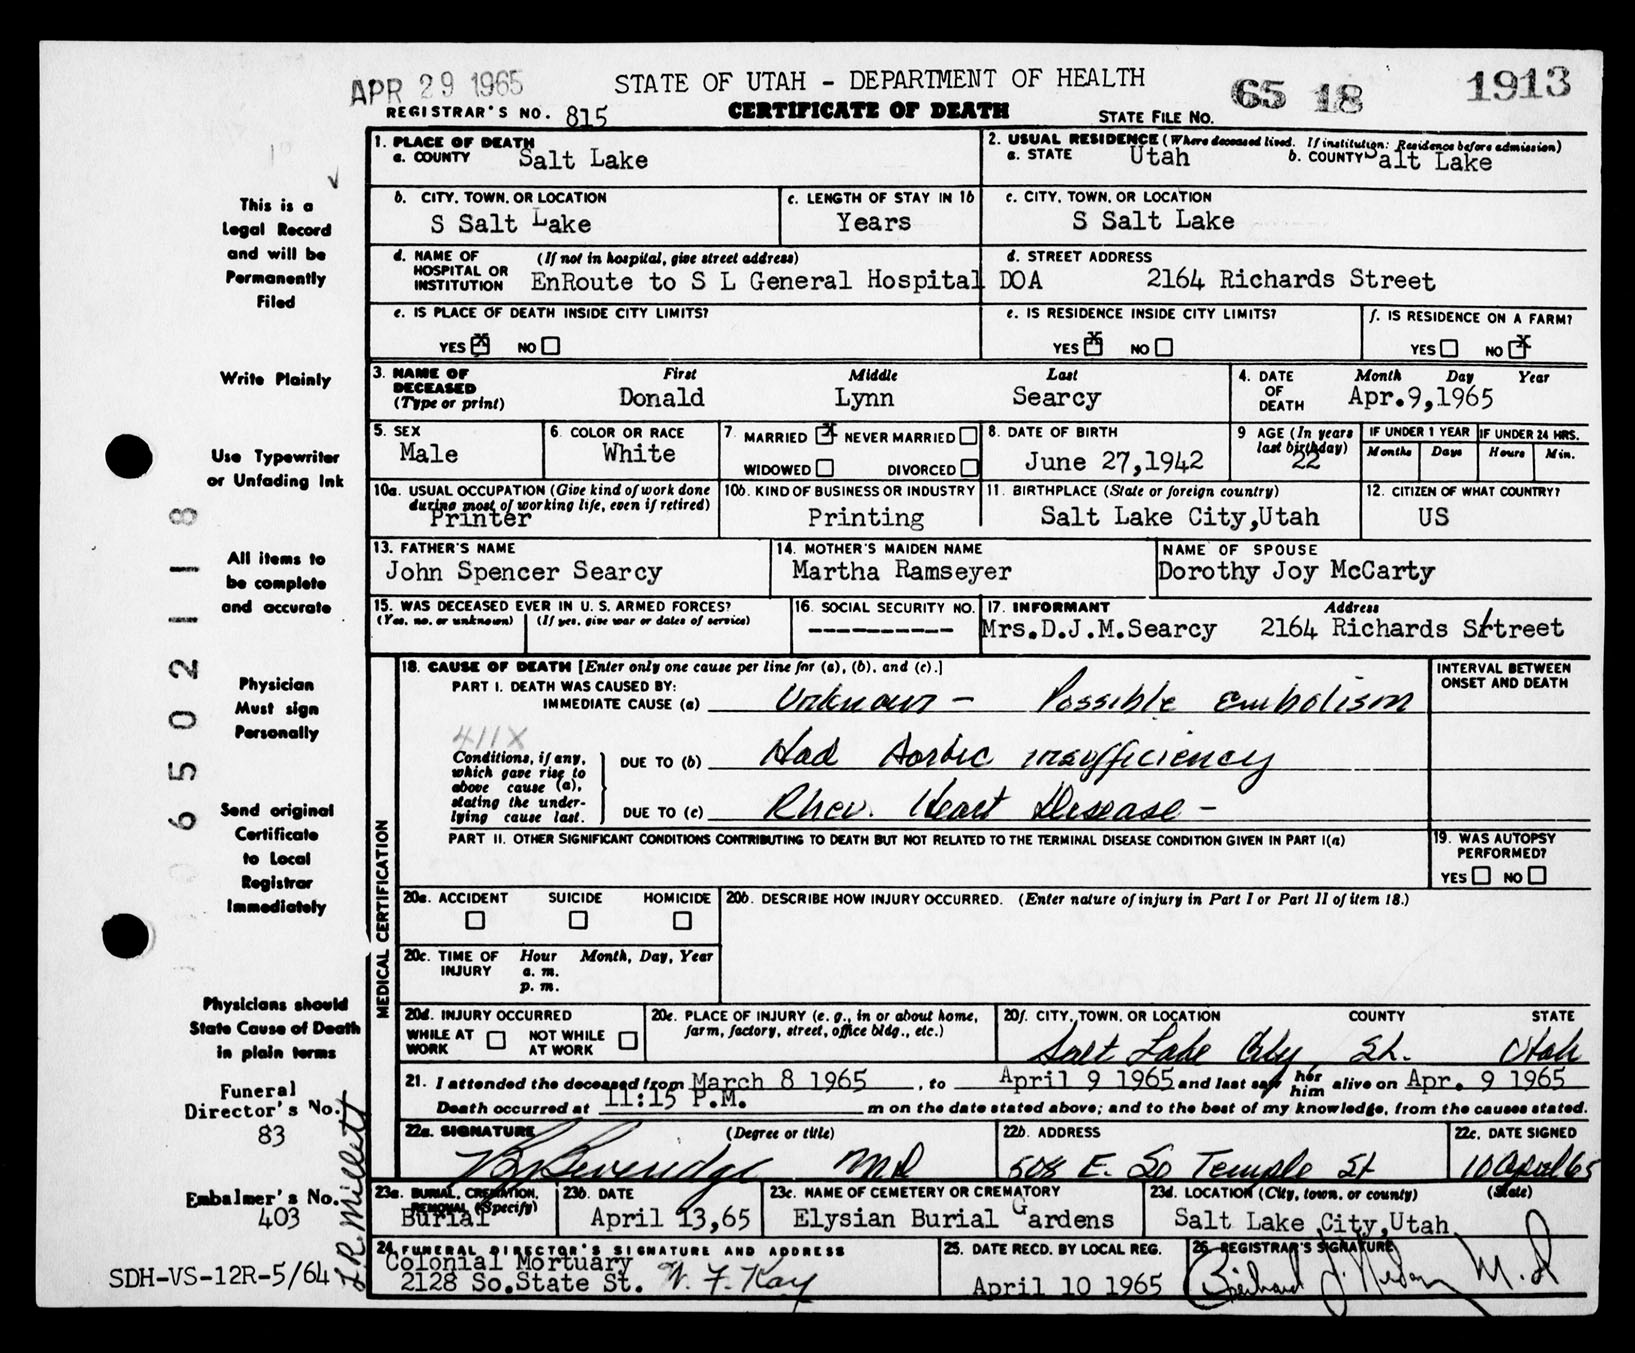 APR 29 1965
STATE OF UTAH - DEPARTMENT OF HEALTH
65 18 1913
REGISTRAR'S NO. 815
CERTIFICATE OF DEATH
STATE FILE NO.
This is a
Legal Record
and will be
Permanently
Filed
Write Plainly
Use Typewriter
or Unfading Ink
All items to
be complete
and accurate
Physician
Must sign
Personally
Send original
Certificate
to Local
Registrar
Immediately
Physicians should
State Cause of Death
in plain terms
Funeral
Director's No.
83
Embalmer's No.
403
SDH-VS-12R-5/64
L R Millett
6 5 0 2 1 1 8
1. PLACE OF DEATH
a. COUNTY Salt Lake
2. USUAL RESIDENCE (Where deceased lived. If institution: Residence before admission)
a. STATE Utah b. COUNTY Salt Lake
b. CITY, TOWN, OR LOCATION
S Salt Lake
c. LENGTH OF STAY IN 1b
Years
c. CITY, TOWN, OR LOCATION
S Salt Lake
d. NAME OF HOSPITAL OR INSTITUTION (If not in hospital, give street address)
EnRoute to S L General Hospital DOA
d. STREET ADDRESS
2164 Richards Street
e. IS PLACE OF DEATH INSIDE CITY LIMITS?
YES X NO
e. IS RESIDENCE INSIDE CITY LIMITS?
YES X NO
f. IS RESIDENCE ON A FARM?
YES NO X
3. NAME OF DECEASED (Type or print)
First Middle Last
Donald Lynn Searcy
4. DATE OF DEATH Month Day Year
Apr.9,1965
5. SEX
Male
6. COLOR OR RACE
White
7. MARRIED X NEVER MARRIED
WIDOWED DIVORCED
8. DATE OF BIRTH
June 27,1942
9 AGE (In years last birthday)
22
IF UNDER 1 YEAR
Months Days
IF UNDER 24 HRS.
Hours Min.
10a. USUAL OCCUPATION (Give kind of work done during most of working life, even if retired)
Printer
10b. KIND OF BUSINESS OR INDUSTRY
Printing
11. BIRTHPLACE (State or foreign country)
Salt Lake City,Utah
12. CITIZEN OF WHAT COUNTRY?
US
13. FATHER'S NAME
John Spencer Searcy
14. MOTHER'S MAIDEN NAME
Martha Ramseyer
NAME OF SPOUSE
Dorothy Joy McCarty
15. WAS DECEASED EVER IN U. S. ARMED FORCES?
(Yes, no, or unknown) (If yes, give war or dates of service)
16. SOCIAL SECURITY NO.
----------
17. INFORMANT Address
Mrs.D.J.M.Searcy 2164 Richards Street
MEDICAL CERTIFICATION
18. CAUSE OF DEATH [Enter only one cause per line for (a), (b), and (c).]
INTERVAL BETWEEN
ONSET AND DEATH
PART I. DEATH WAS CAUSED BY:
IMMEDIATE CAUSE (a) Unknown - Possible embolism
411X
Conditions, if any,
which gave rise to
above cause (a),
stating the under-
lying cause last.
DUE TO (b) Had Aortic insufficiency
DUE TO (c) Rheu. Heart Disease -
PART II. OTHER SIGNIFICANT CONDITIONS CONTRIBUTING TO DEATH BUT NOT RELATED TO THE TERMINAL DISEASE CONDITION GIVEN IN PART I(a)
19. WAS AUTOPSY
PERFORMED?
YES NO
20a. ACCIDENT SUICIDE HOMICIDE
20b. DESCRIBE HOW INJURY OCCURRED. (Enter nature of injury in Part I or Part II of item 18.)
20c. TIME OF INJURY Hour Month, Day, Year
a. m.
p. m.
20d. INJURY OCCURRED
WHILE AT WORK NOT WHILE AT WORK
20e. PLACE OF INJURY (e. g., in or about home,
farm, factory, street, office bldg., etc.)
20f. CITY, TOWN, OR LOCATION COUNTY STATE
Salt Lake City SL. Utah
21. I attended the deceased from March 8 1965, to April 9 1965 and last saw her him alive on Apr. 9 1965
Death occurred at 11:15 P.M. m on the date stated above; and to the best of my knowledge, from the causes stated.
22a. SIGNATURE (Degree or title)
Beveridge MD
22b. ADDRESS
508 E. So Temple St
22c. DATE SIGNED
10 April 65
23a. BURIAL, CREMATION, REMOVAL (Specify)
Burial
23b. DATE
April 13,65
23c. NAME OF CEMETERY OR CREMATORY
Elysian Burial Gardens
23d. LOCATION (City, town, or county) (State)
Salt Lake City,Utah
24. FUNERAL DIRECTOR'S SIGNATURE AND ADDRESS
Colonial Mortuary
2128 So.State St. W. F. Kay
25. DATE RECD. BY LOCAL REG.
April 10 1965
26. REGISTRAR'S SIGNATURE
M.D